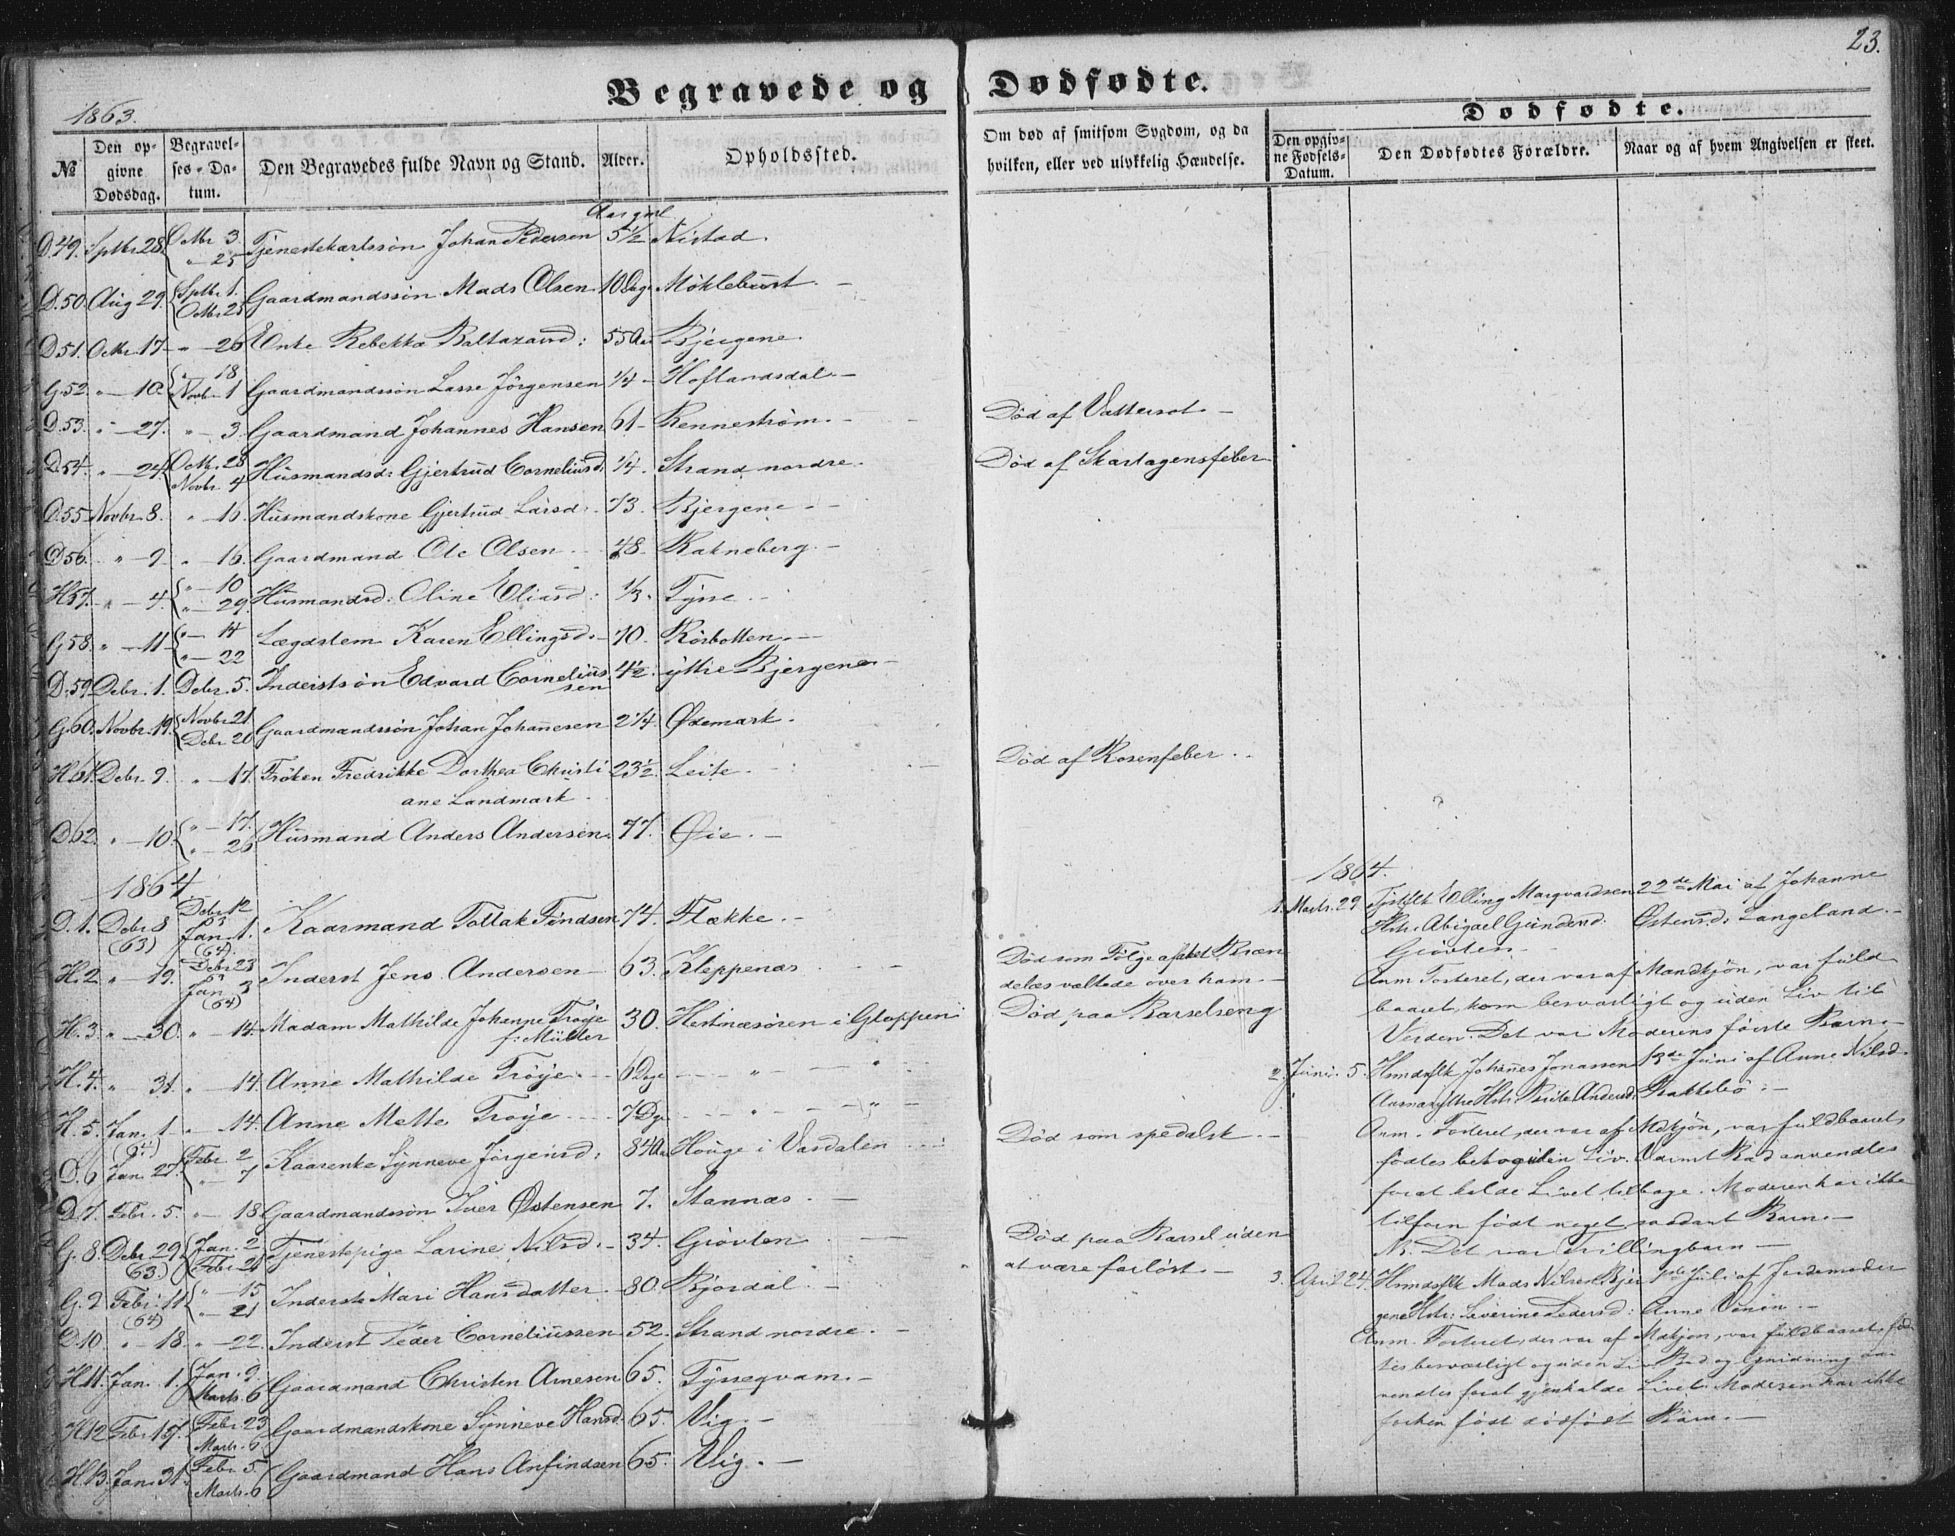 23.
Begravede og Dødfødte.
1863.
№
Den opgivne Dødsdag.
Begravelses-Datum.
Den Begravedes fulde Navn og Stand.
Alder.
Opholdssted.
Om død af smitsom Sygdom, og da hvilken, eller ved ulykkelig Hændelse.
Dødfødte.
Den opgivne Fødsels-Datum.
Den Dødfødtes Forældre.
Naar og af hvem Angivelsen er skeet.
D.49. Sptbr 28. Octbr 3 " 25 Tjenestekarlssøn Johan Pedersen 5½ Nistad.
D.50. Aug 29. Sptbr 1. Octbr 25 Gaardmandssøn Mads Olsen 10 Dag. Møklebust.
D.51. Octbr. 17. " 26 Enke Rebekka Baltazard: 55 Aar Bjergene.
G.52. " 10. " 18 Novbr 1 Gaardmandssøn Lasse Jörgensen ¼ Hoflandsdal.
D.53. " 27. " 3. Gaardmand Johannes Hansen 61 Rennestrøm. Død af Vattersot.
D.54. " 24. Octbr. 28 Novbr. 4 Husmandsd: Gjertrud Corneliusd. ¼. Strand nordre. Død af Skarlagensfeber
D.55 Novbr 8. " 16. Husmandskone Gjertrud Larsd. 73. Bjergene.
D56. " 9 " 16. Gaardmand Ole Olsen 48. Rakneberg.
H57. " 4. " 10 " 29. Husmandsd: Oline Eliasd: ⅓. Tysse.
G58. " 11 " 14 " 22 Lægdslem Karen Ellingsd. 70. Rörbotten.
D.59. Debr. 1. Debr. 5. Inderstsøn Edvard Corneliussen 4½. yttre Bjergene
G.60. Novbr. 19. Novbr 21 Debr 20 Gaardmandssøn Johan Johannesen 2¼. Ødemark.
H.61. Debr. 9. " 17. Frøken Fredrikke Dorthea Christiane Landmark 23½. Leite. Død af Rosenfeber.
D62. " 10. " 17. " 26 Husmand Anders Andersen. 77. Øie.
1864
D.1. Debr 8 (63) Debr 12 63 Jan. 1. (64) Kaarmand Tollak Findsen 74. Flække.
H.2 " 19. Debr 23 63 Jan. 3 (64) Inderst Jens Andersen 63. Kleppenæs Død som Følge af at et Brændelæs væltede over ham.
H.3. " 30. " 14. Madam Mathilde Johanne Tröje f: Müller 30. Hestenæsören i Gloppen Død paa Barselseng
H.4. " 31. " 14. Anne Mathilde Tröje 6 Dge " "
H.5. Jan. 1. (64) " 14. Anne Mette Tröje 7 Dge " "
D.6 Jan. 27. Febr 2 " 7 Kaarenke Synneve Jörgensd: 84 Aar Houge i Vasdalen Død som spedalsk.
D7. Febr. 5. " 18 Gaardmandssøn Iver Østensen 7. Stannæs.
G.8. Debr 29. (63.) Jan. 2 Febr 21 Tjenestepige Larine Nilsd. 34. Grövten Død paa Barsel uden at være forlöst.
G.9 Febr. 11 (64) " 15 " 21 Inderste Mari Hansdatter 80. Bjordal.
D.10 " 18. " 22. Inderst Peder Corneliussen 52. Strand nordre.
H11. Jan. 1. Jan. 9. Marts. 6 Gaardmand Christen Arnesen 65. Tyssequam.
H12 Febr 17. Febr 23 Marts. 6 Gaardmandskone Synneve Hansd. 65. Vig.
H13. Jan. 31. Febr 5. Marts. 6 Gaardmand Hans Anfindsen 65. Vig.
1864.
1. Marts. 29 Elling Margvardsen 22de Mai af Johanne
Hstr. Abigael Gundersd. Østensd: Langeland.
Grövten
Anm. Fosteret, der var af Mandkjön, var fuld
baaret, kom besværligt og uden Liv til
Verden. Det var Moderens förste Barn.
2. Juni. 5. Hsmdsflk Johannes Jonassen 13de Juni af Anne Nilsd.
Hstr. Anders. Bakkebö.
Anm. Fosteret, der var af Mdkjön, var fuldbaaret,
födtes uden Liv. Varmt Bad anvendtes
forat kalde Livet tilbage. Moderen har ikke
tilforn født noget saadant Barn.
N. Det var Tvillingbarn
3. April 24. Hsmdsflk Mads Nilsen Bjer 1ste Juli af Jordemoder
gene Hstr: Severine Pedersd: Anne
Anm. Fosteret, der var af Mdkjøn, var fuldbaaret, föd
tes besværligt og uden Liv. Bad og Gnidning an
vendtes forat gjenkalde Livet. Moderen har ikke
forhen født dødfødt Barn.